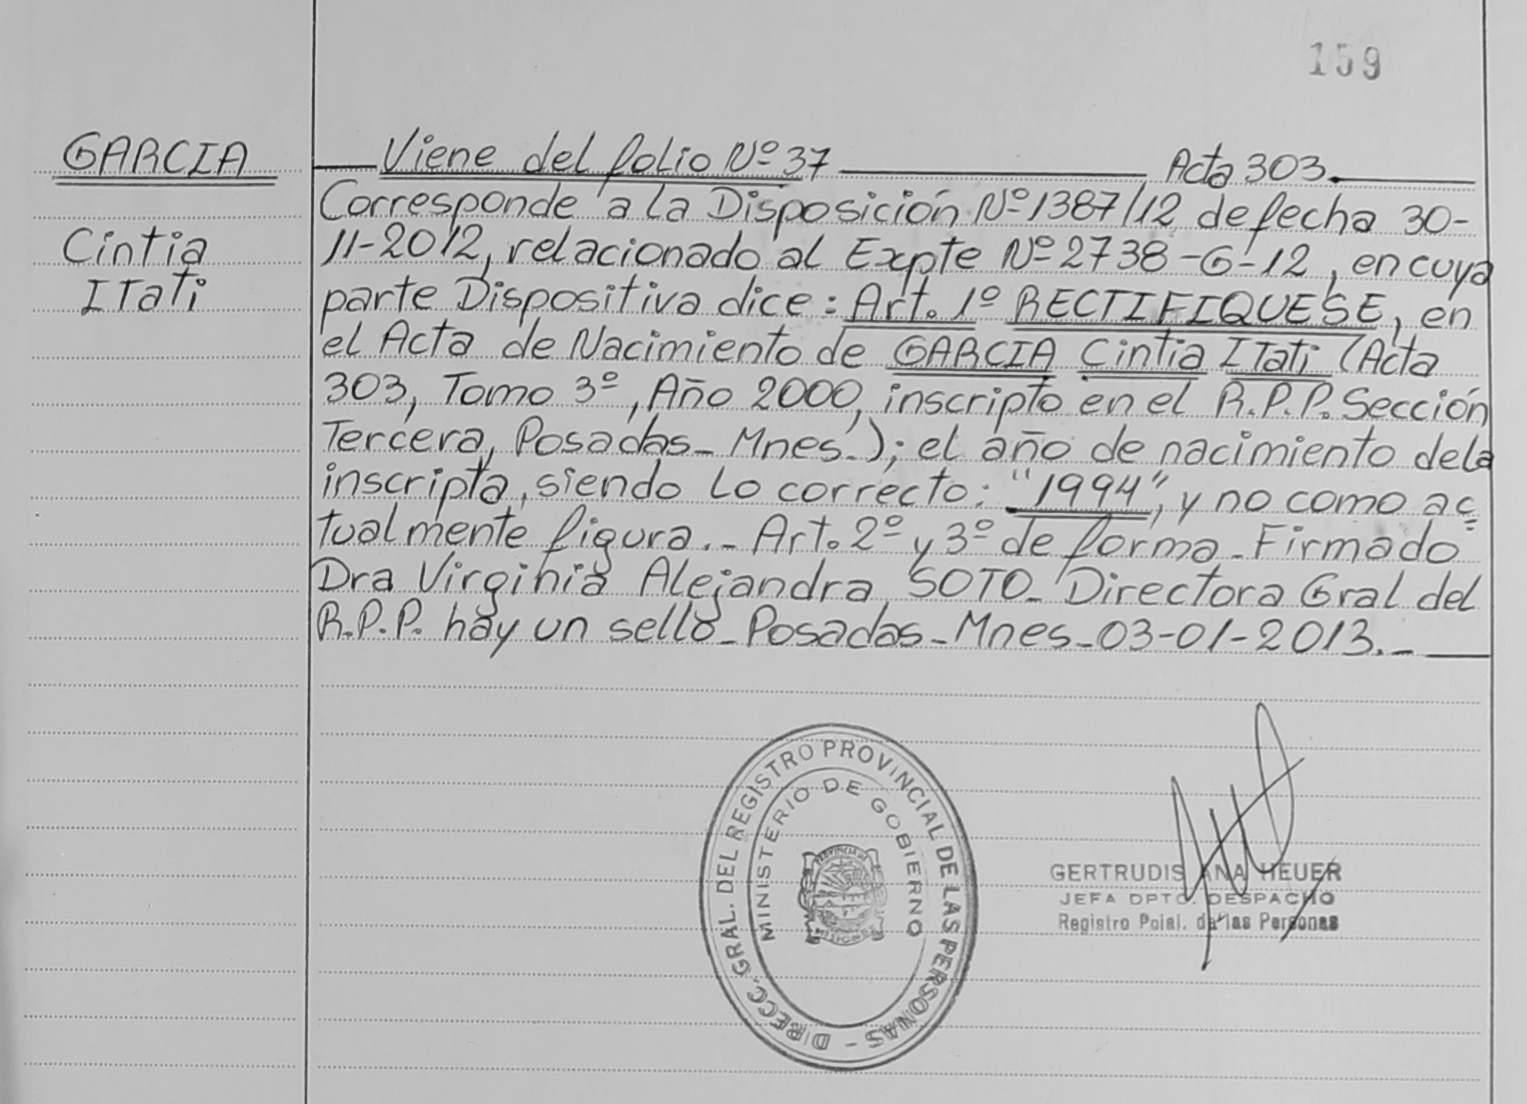 159
GARCIA
Cintia
ITati
Viene del folio Nº 37 Acta 303.
Corresponde a la Disposición Nº 1387/12 de fecha 30-
11-2012, relacionado al Expte Nº 2738-G-12, en cuya
parte Dispositiva dice: Art. 1º RECTIFIQUESE, en
el Acta de Nacimiento de GARCIA Cintia ITati (Acta
303, Tomo 3º, Año 2000, inscripto en el R.P.P. Sección
Tercera, Posadas-Mnes.); el año de nacimiento dela
inscripta, siendo lo correcto: "1994", y no como ac=
tualmente figura.- Art. 2º y 3º de forma-Firmado
Dra Virginia Alejandra SOTO-Directora Gral del
R.P.P. hay un sello-Posadas-Mnes-03-01-2013.-
DIRECC. GRAL. DEL REGISTRO PROVINCIAL DE LAS PERSONAS -
MINISTERIO DE GOBIERNO
GERTRUDIS ANA HEUER
JEFA DPTO. DESPACHO
Registro Pcial. de las Personas